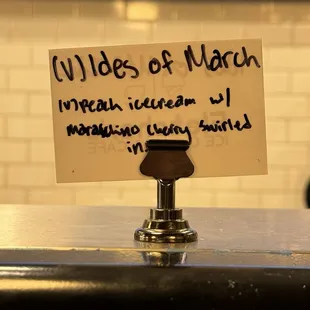 (V) Ides of March
(V) Peach icecream w/
Maraschino Cherry swirled
in